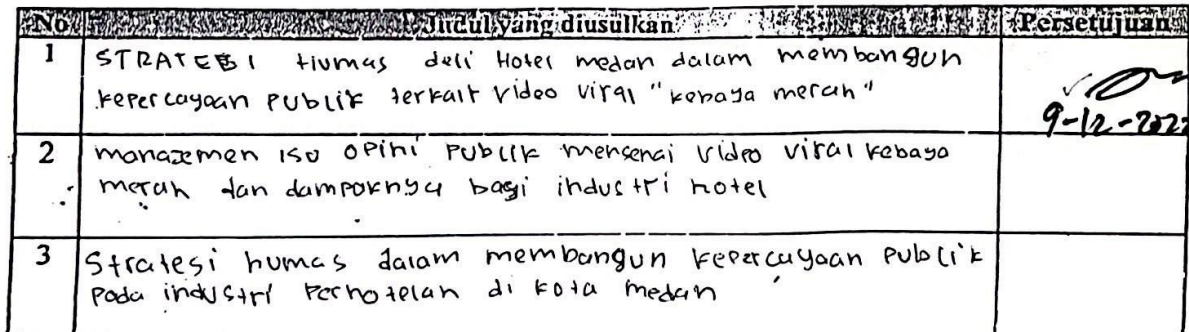 No Judul yang diusulkan Persetujuan
1 STRATEGI Humas deli Hotel medan dalam membangun
kepercayaan publik terkait video viral "kebaya merah"
9-12-2022
2 manazemen isu opini publik mengenai video viral kebaya
merah dan dampaknya bagi industri hotel
3 Strategi humas dalam membangun kepercayaan publik
pada industri perhotelan di kota medan